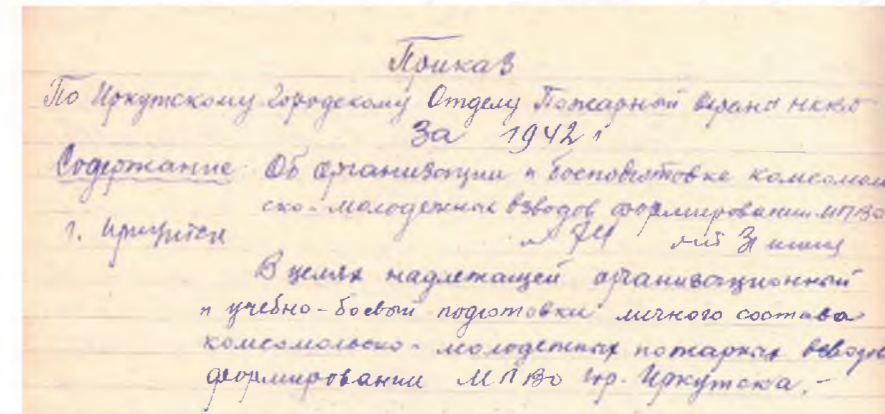 Приказ
По Иркутскому Городскому Отделу Пожарной Охраны НКВД
За 1942 г
Содержание: Об организации и боеподготовке комсомол
ско-молодежных взводов формировании МПВО
г. Иркутск № 74 от 3 июня
В целях надлежащей организационной
и учебно-боевой подготовки личного состава
комсомольско-молодежных пожарных взводов
формировании МПВО гор. Иркутска.-